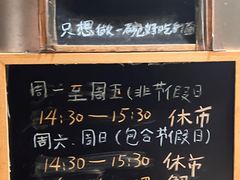 只想做一碗好吃的面
周一至周五(非节假日
14:30—15:30 休市
周六、周日(包含节假日)
14:30—15:30 休市